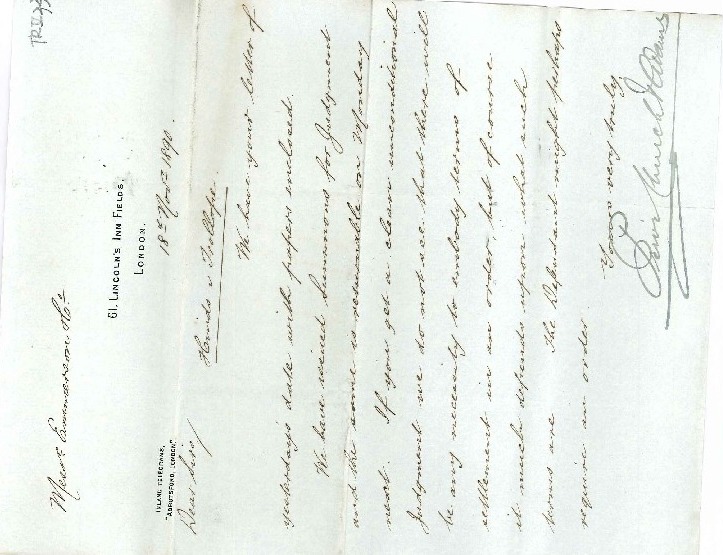 61, LINCOLN'S INN FIELDS,
LONDON.
18th Novr 1890.
INLAND TELEGRAMS,
"ABBOTSFORD, LONDON."
Dear Sirs/
v Trollope.
We have your letter of
yesterday's date with papers enclosed.
We have issued Summons for Judgment
and the same is returnable on Monday
next. If you get a clean unconditional
Judgment we do not see that there will
be any necessity to embody terms of
settlement in an order, but of course
it much depends upon what such
terms are. The Defendant might perhaps
require an order.
Yours very truly
Messrs Emmerson & Co